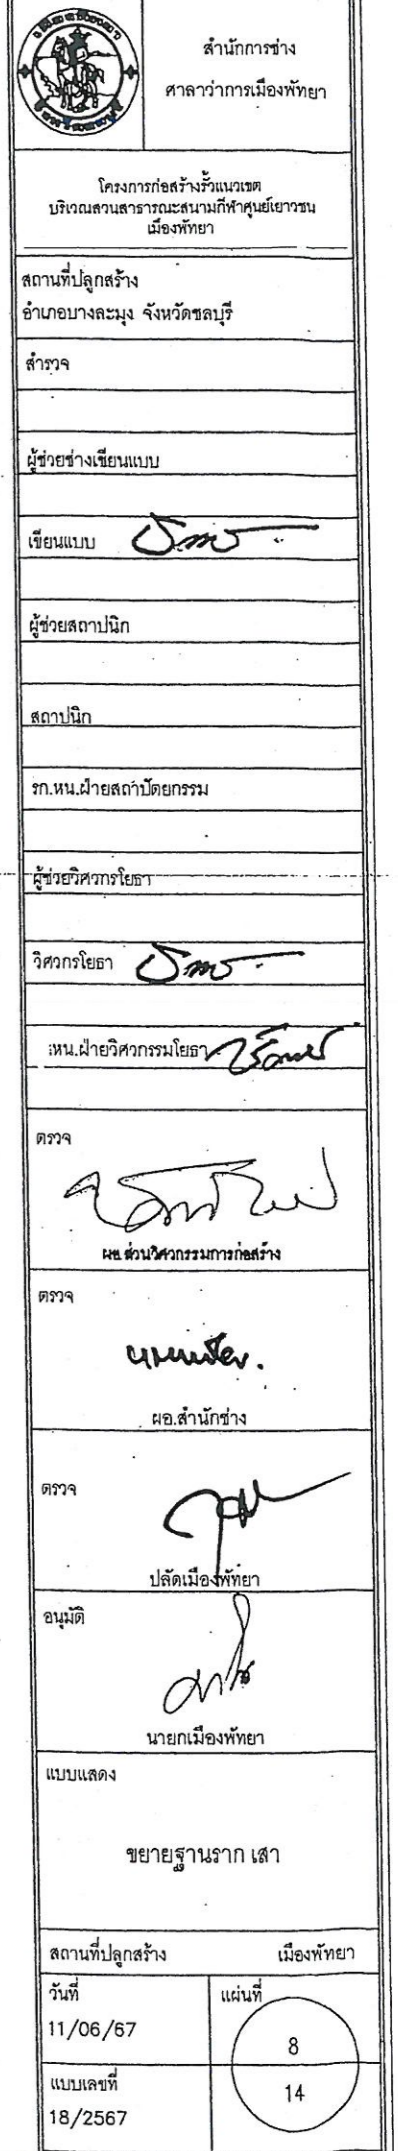 สำนักการช่าง
ศาลาว่าการเมืองพัทยา
โครงการก่อสร้างรั้วแนวเขต
บริเวณสวนสาธารณะสนามกีฬาศูนย์เยาวชน
เมืองพัทยา
สถานที่ปลูกสร้าง
อำเภอบางละมุง จังหวัดชลบุรี
สำรวจ
ผู้ช่วยช่างเขียนแบบ
เขียนแบบ
ผู้ช่วยสถาปนิก
สถาปนิก
รก.หน.ฝ่ายสถาปัตยกรรม
ผู้ช่วยวิศวกรโยธา
วิศวกรโยธา
หน.ฝ่ายวิศวกรรมโยธา
ตรวจ
ผอ.ส่วนวิศวกรรมการก่อสร้าง
ตรวจ
ผอ.สำนักช่าง
ตรวจ
ปลัดเมืองพัทยา
อนุมัติ
นายกเมืองพัทยา
แบบแสดง
ขยายฐานราก เสา
สถานที่ปลูกสร้าง เมืองพัทยา
วันที่
11/06/67
แผ่นที่
8
14
แบบเลขที่
18/2567